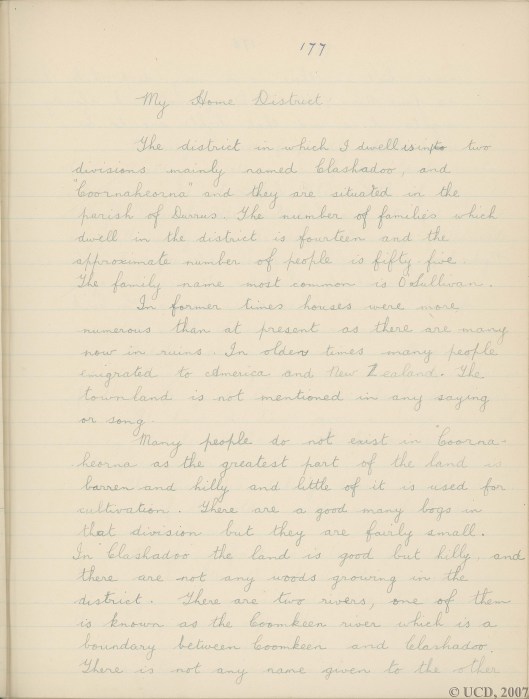 177
My Home District
The district in which I dwell is into two
divisions mainly named Clashadoo, and
"Coornaheorna" and they are situated in the
parish of Durrus. The number of families which
dwell in the district is fourteen and the
approximate number of people is fifty five.
The family name most common is O'Sullivan.
In former times houses were more
numerous than at present as there are many
now in ruins. In olden times many people
emigrated to America and New Zealand. The
townland is not mentioned in any saying
or song.
Many people do not exist in "Coorna-
heorna as the greatest part of the land is
barren and hilly and little of it is used for
cultivation. There are a good many bogs in
that division but they are fairly small.
In "Clashadoo the land is good but hilly and
there are not any woods growing in the
district. There are two rivers, one of them
is known as the Coomkeen river which is a
boundary between Coomkeen and Clashadoo.
There is not any name given to the other
© UCD, 2007